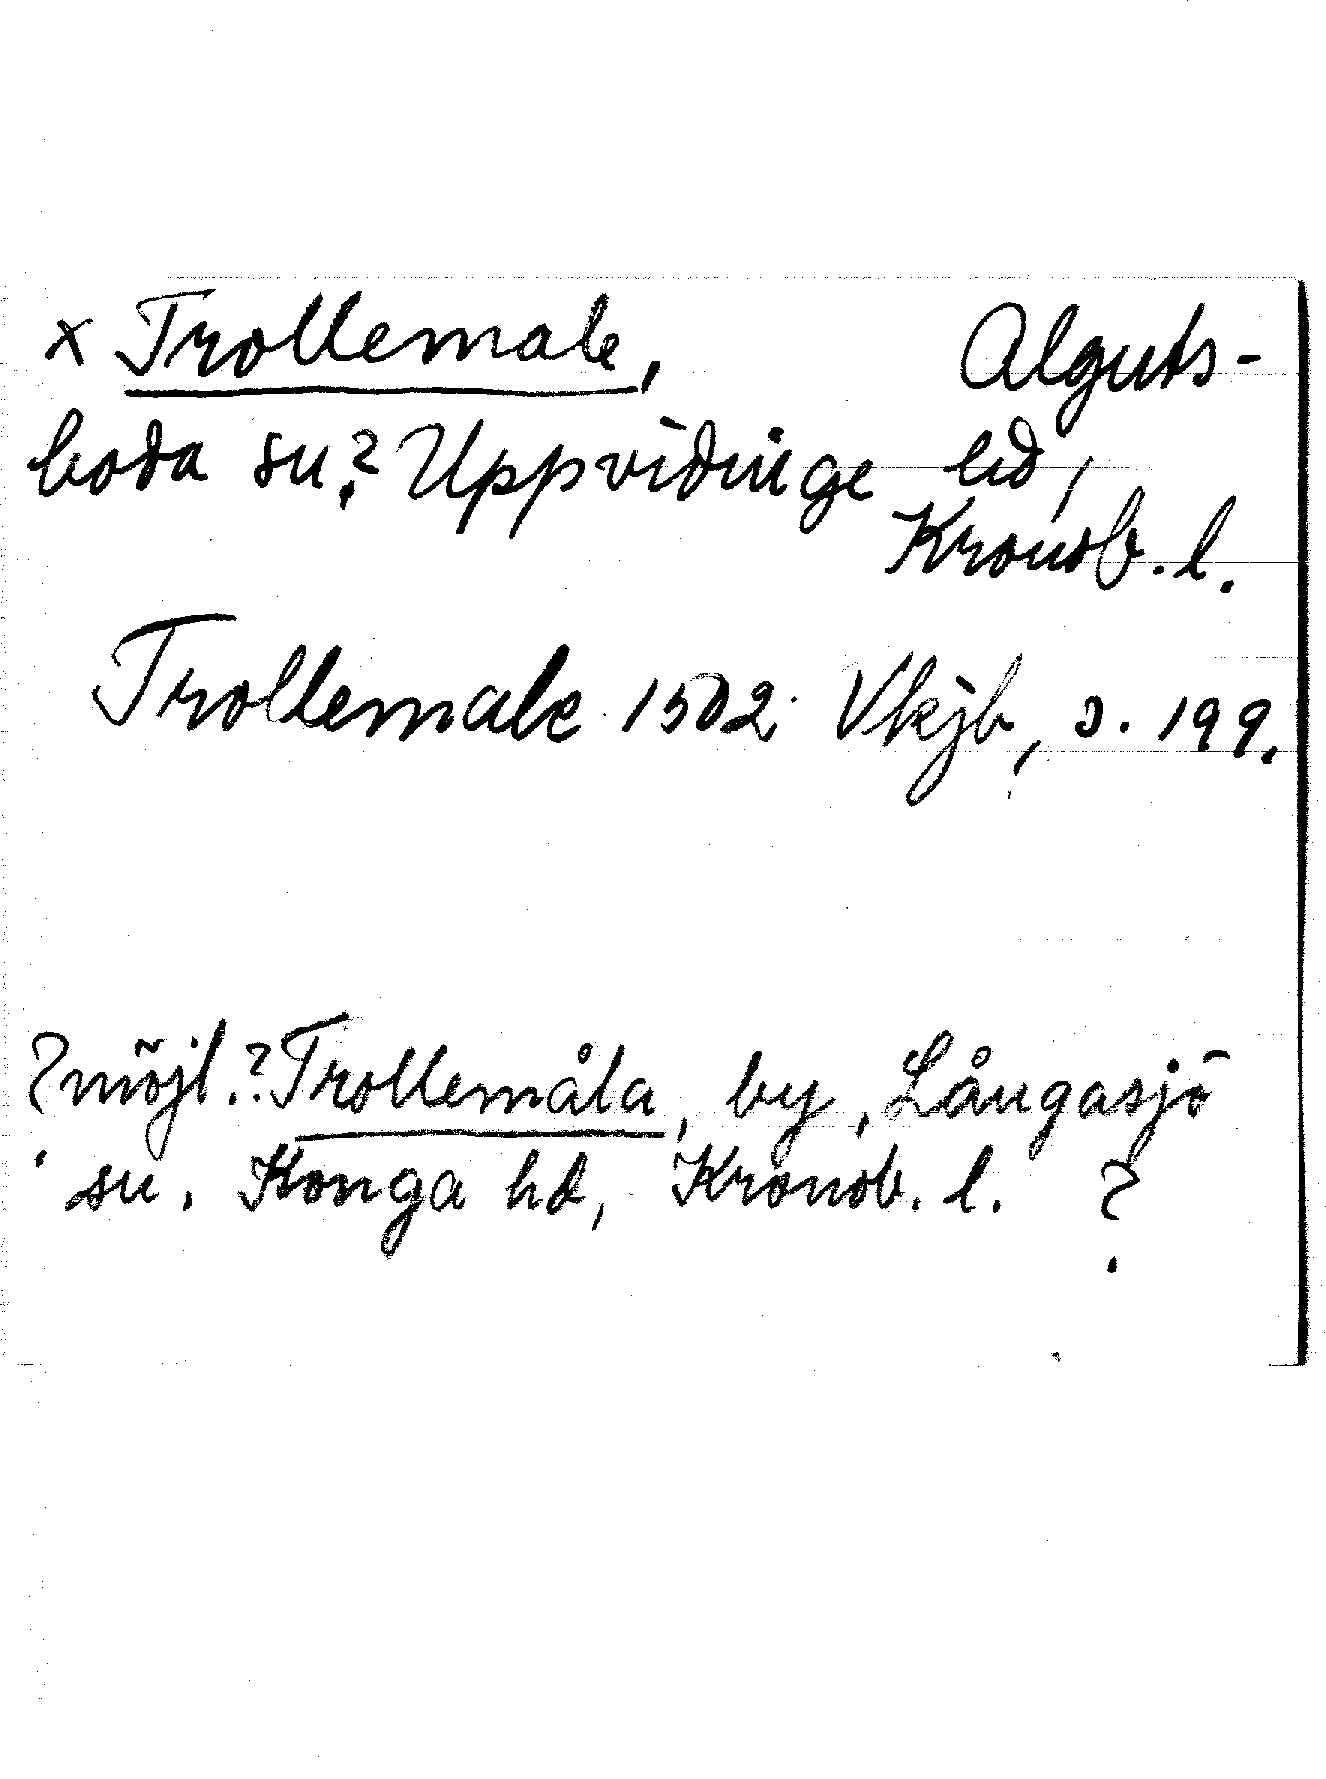 x Trollemale, Alguts-
boda sn? Uppvidinge hd,
Kronob. l.
Trollemale 1502 Vkjb, s. 199.
? möjl.? Trollemåla, by, Långasjö
sn. Konga hd, Kronob. l. ?